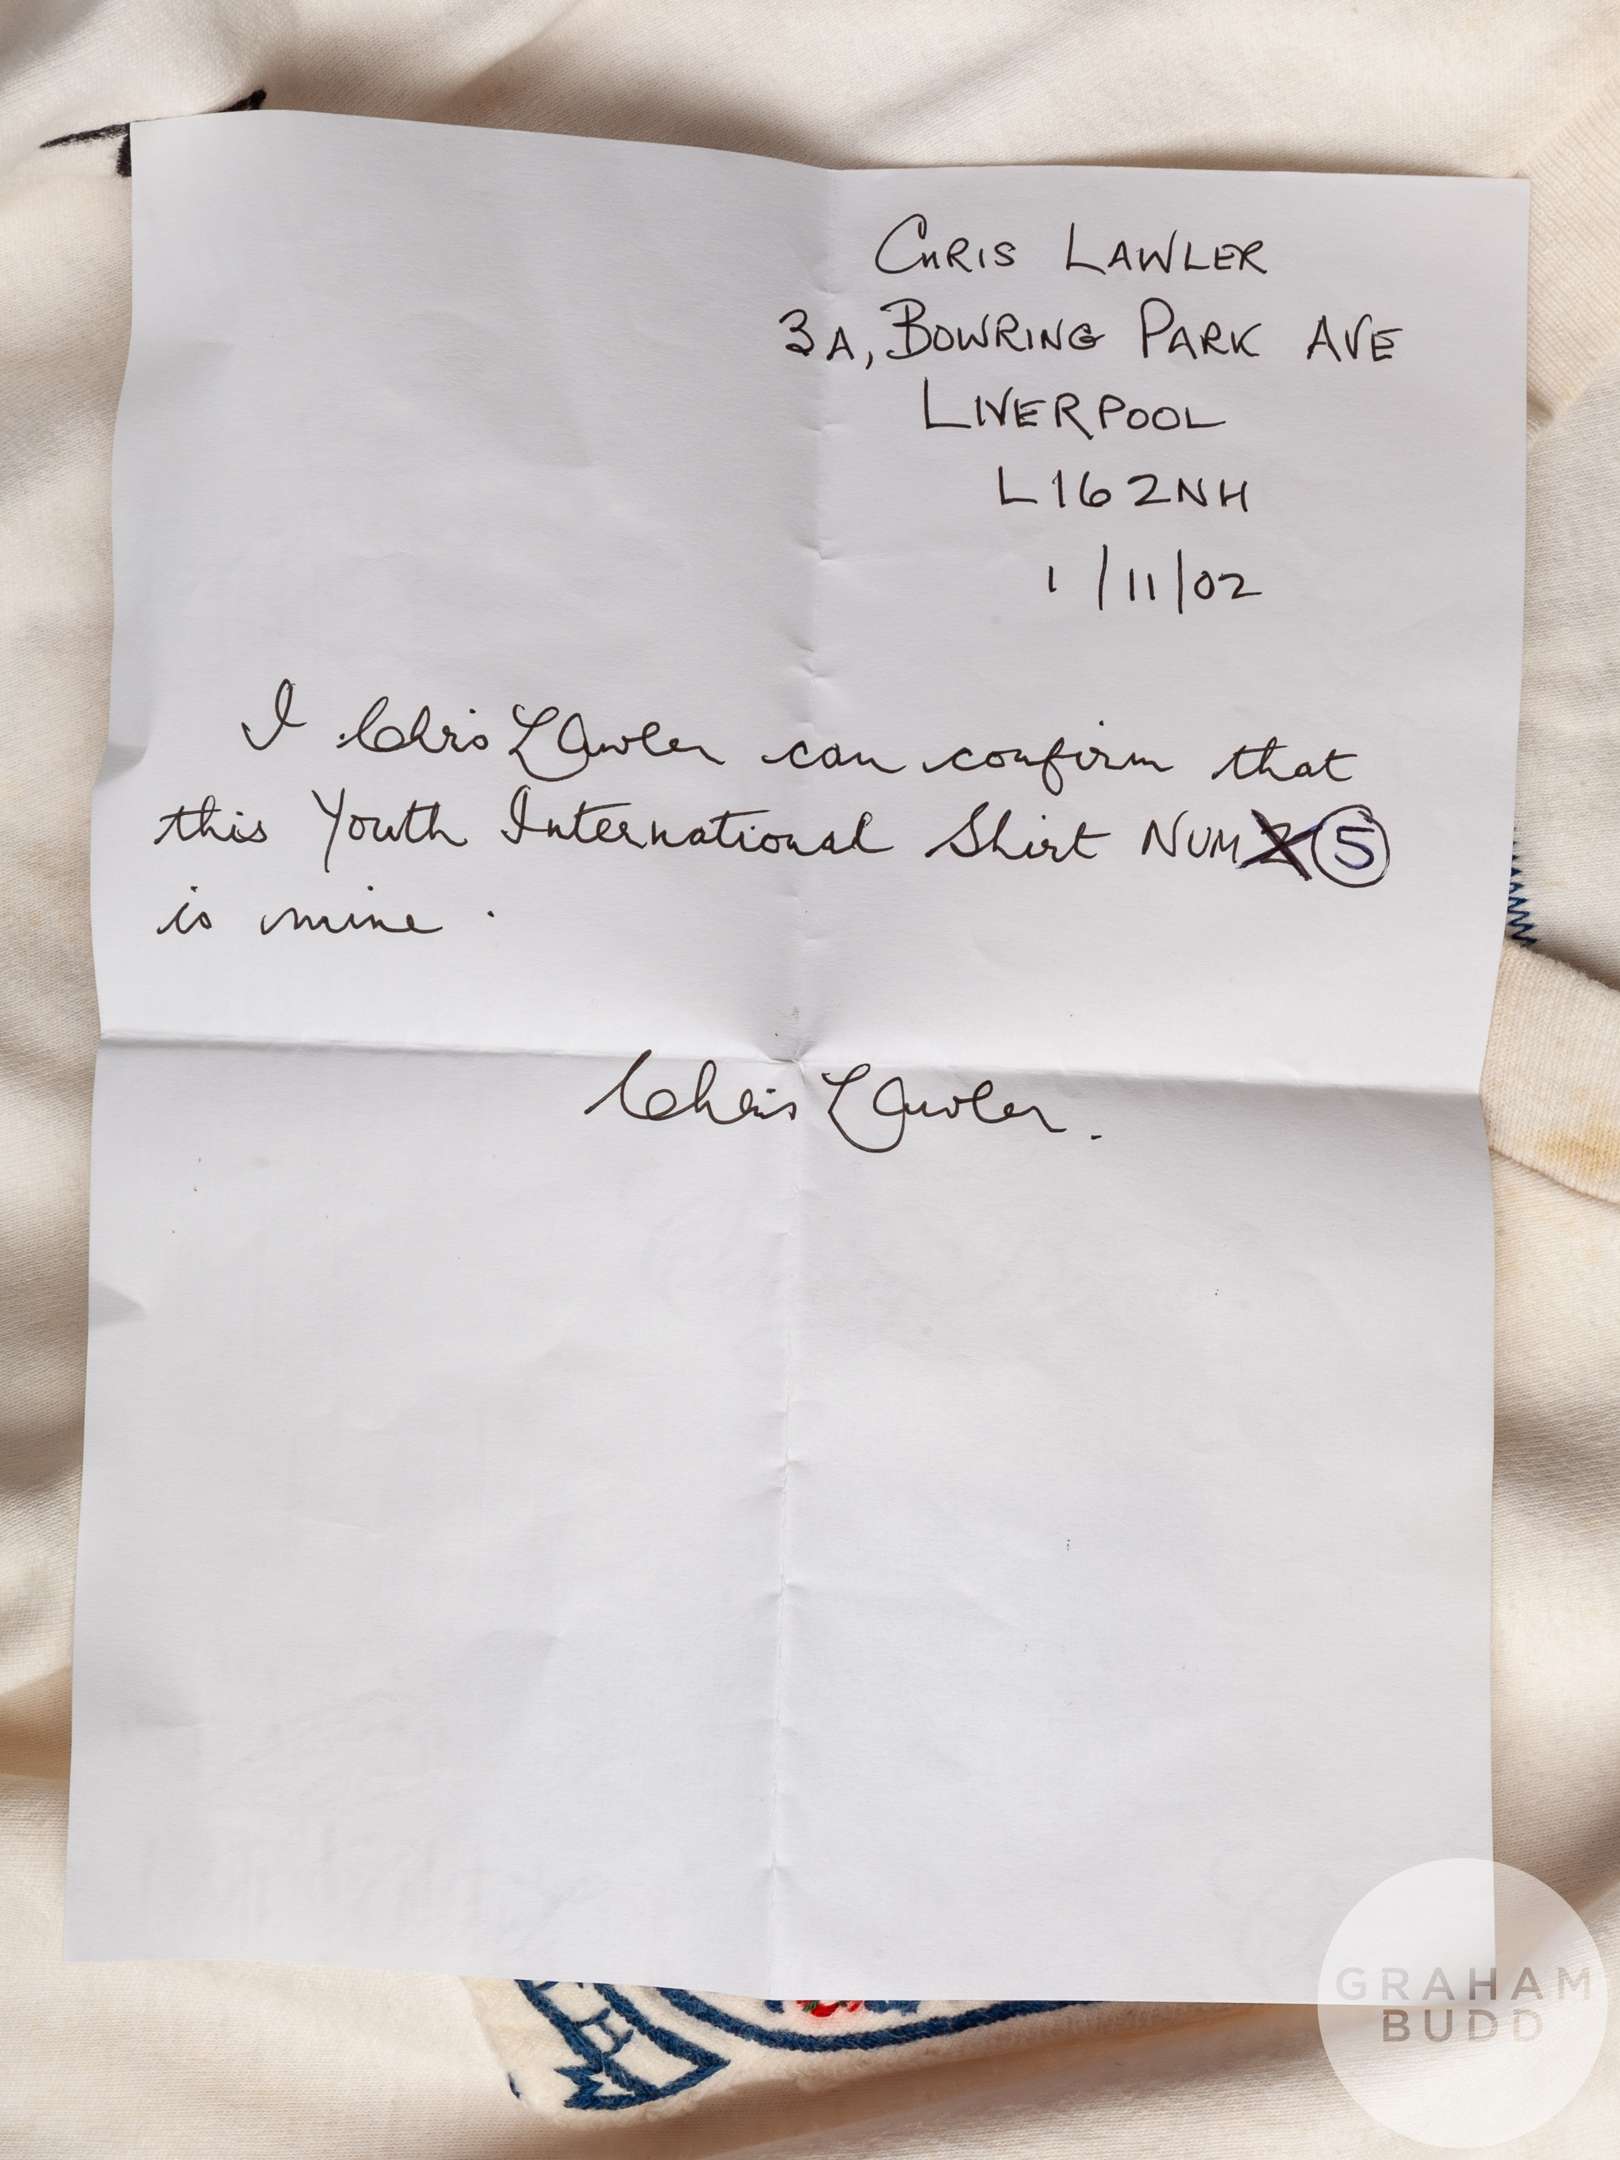 CHRIS LAWLER
3A, BOWRING PARK AVE
LIVERPOOL
L16 2NH
1/11/02
I Chris Lawler can confirm that
this Youth International Shirt NUM 2 5
is mine.
Chris Lawler.
GRAHAM
BUDD